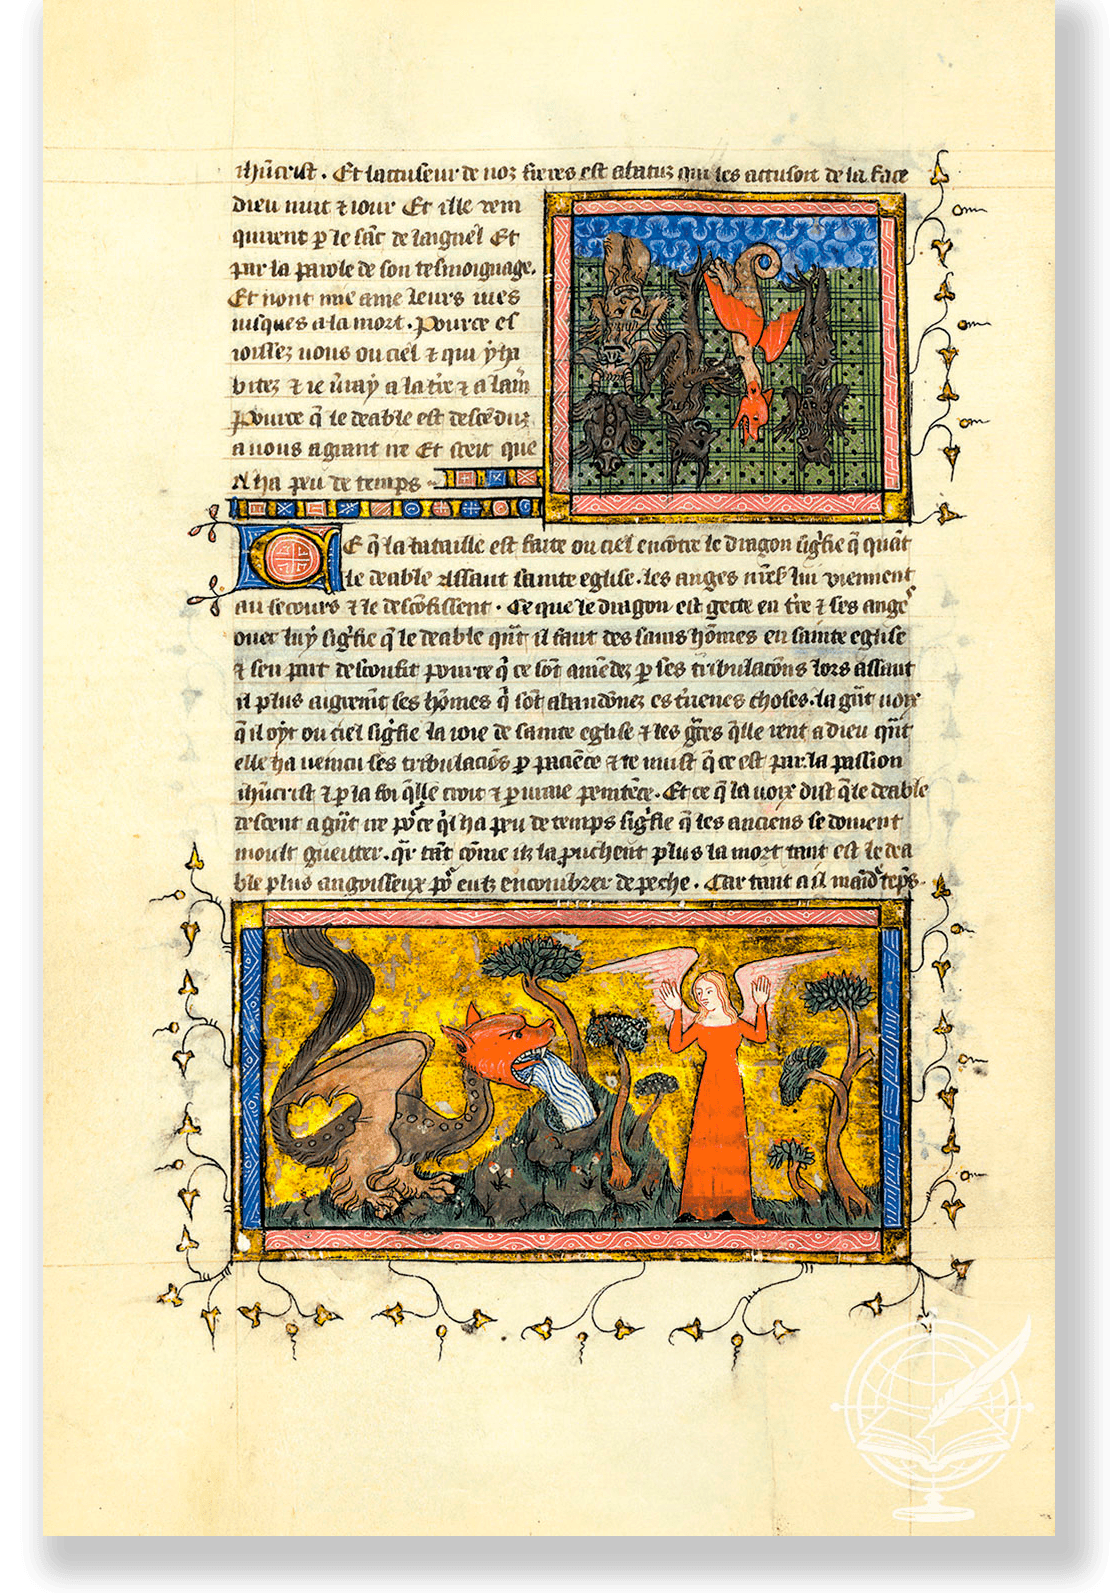 ihūcrist . Et lacuseur de noz freres est abatuz qui les accusoit de la face
dieu nuit ⁊ iour Et ille vein
quirent p̱ le sāc de laignel Et
par la parole de son tesmoignage.
Et nont mie ame leurs uies
iusques a la mort . Pource es
ioissez uous ou ciel ⁊ qui ẏ ha
bitez ⁊ ie
Pource q̄ le deable est descēduz
a uous a grant ire Et sceit que
il ha peu de temps
CE q̄ la bataille est faite ou ciel encōtre le dragon sig̑fie q̄ quāt
le deable assaut sainte eglise . les anges lui viennent
au secours ⁊ le descōfissent . Ce que le dragon est gecte en t̑re ⁊ ses ange
ouec luy sig̑fie q̄ le deable qn̄t il faut des sains hōmes en sainte eglise
⁊ seu part desconfit pource q̄ ce sōt amēdez p̱ ses tribulacōns lors assaut
il plus aigremt̄ ses hōmes q̄ sōt abandōnez es t̑rienes choses . la gn̄t uoix
q̄ il oyt ou ciel sig̑fie la ioie de sainte eglise ⁊ les g̑ces q̄lle rent a dieu qn̄t
elle ha veincu ses tribulaciōs p̱ paciēce ce est par la passion
ihūcrist ⁊ p̱ la foi q̄lle croit ⁊ p̱ uraie penitēce . Et ce q̄ la uoix dist q̄ le deable
descent a gn̄t ire po͛ce q̄l ha peu de temps sig̑fie q̄ les anciens se doiuent
moult gueitter . q̑r tāt cōme ilz la p̱uchent plus la mort tant est le dea
ble plus angoisseux po͛ eulz encombrer de peche . Car tant a il maīd͛ tēps